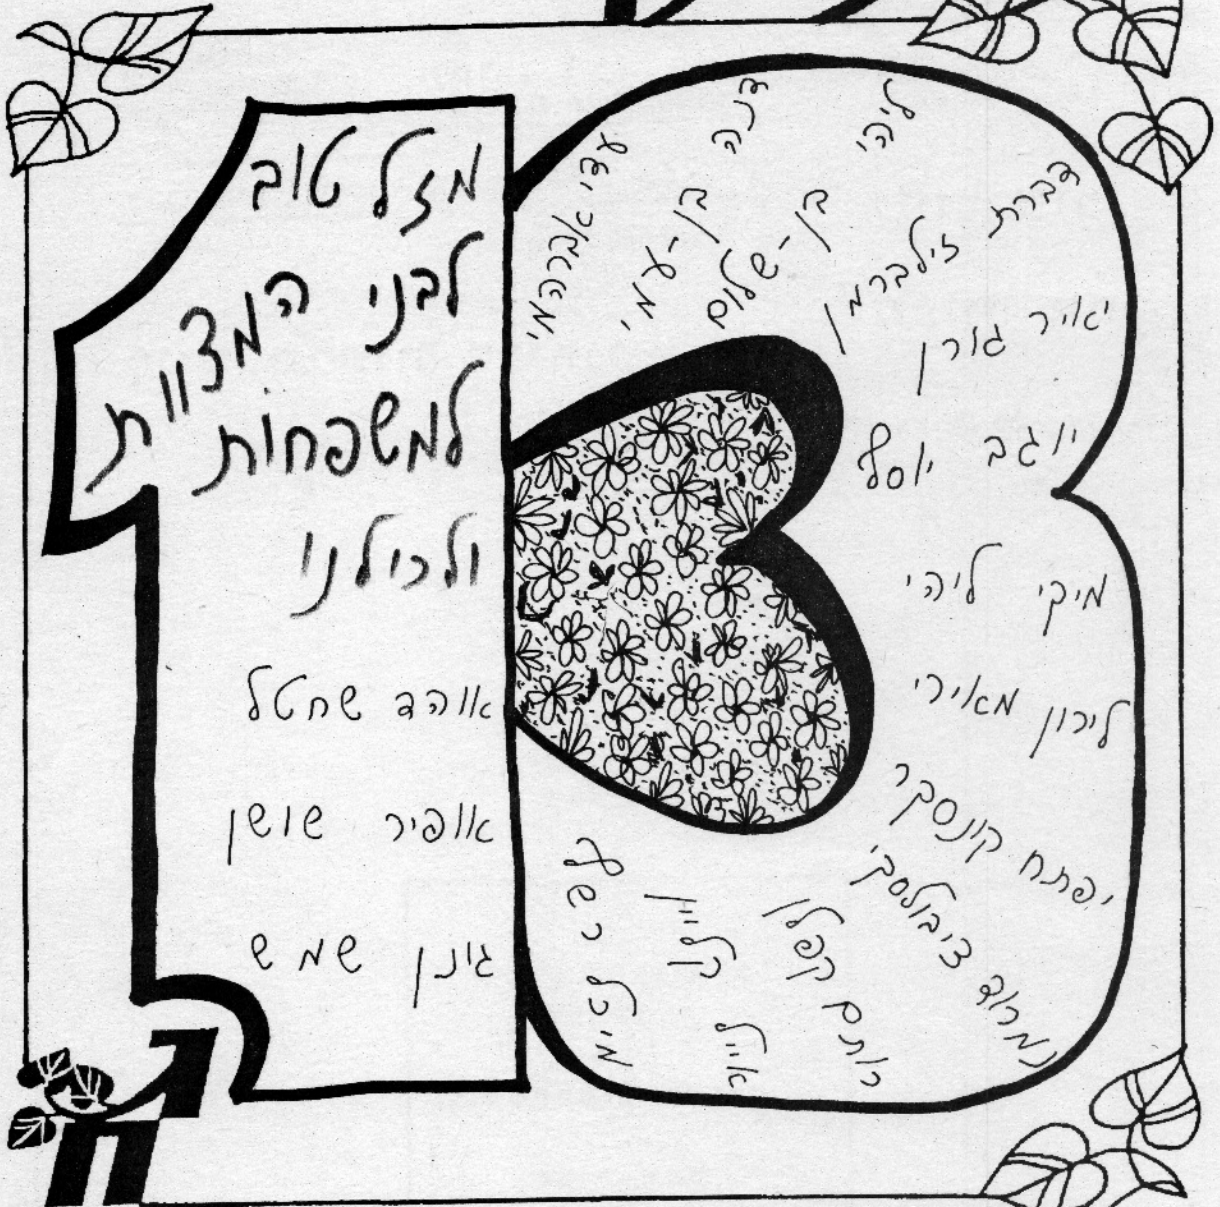 מזל טוב
לבני המצוות
למשפחות
ולכולנו
אוהד שחטל
אופיר שושן
גינן שמש
עדי אברהמי
דנה בן-עמי
ליהי בן-שלום
דברת זילברמן
יאיר גורן
יוגב יוסף
מיקי ליהי
לירון מאירי
יפתח קונסקר
נמרוד ציבולסקי
רותם קפלן
אייל קליין
מיכל רשף